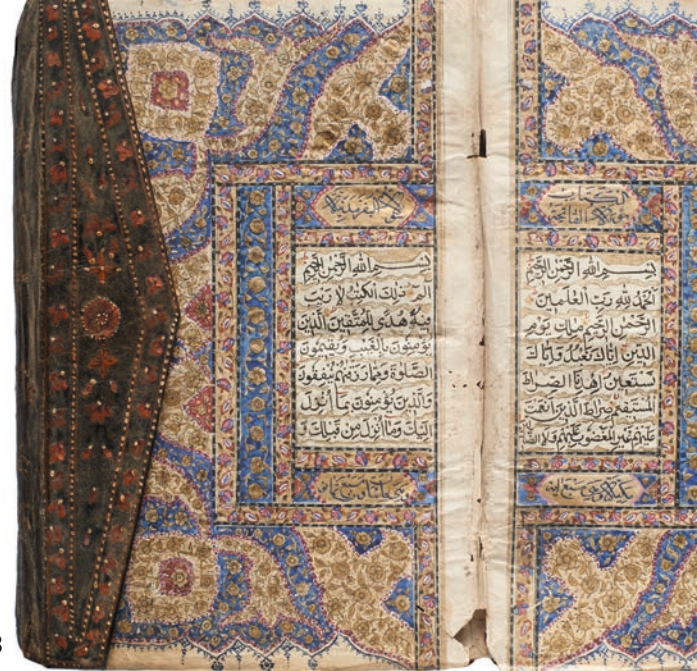 الكتاب
سورة الفاتحة
بِسْمِ اللهِ الرَّحْمٰنِ الرَّحِيْمِ
اَلْحَمْدُ لِلّٰهِ رَبِّ الْعَالَمِيْنَ
الرَّحْمٰنِ الرَّحِيْمِ مٰلِكِ يَوْمِ
الدِّيْنِ اِيَّاكَ نَعْبُدُ وَاِيَّاكَ
نَسْتَعِيْنُ اِهْدِنَا الصِّرَاطَ
الْمُسْتَقِيْمَ صِرَاطَ الَّذِيْنَ اَنْعَمْتَ
عَلَيْهِمْ غَيْرِ الْمَغْضُوْبِ عَلَيْهِمْ وَلَا الضَّا
بِسْمِ اللهِ الرَّحْمٰنِ الرَّحِيْمِ
الم ذٰلِكَ الْكِتٰبُ لَا رَيْبَ
فِيْهِ هُدًى لِلْمُتَّقِيْنَ الَّذِيْنَ
يُؤْمِنُوْنَ بِالْغَيْبِ وَيُقِيْمُوْنَ
الصَّلٰوةَ وَمِمَّا رَزَقْنٰهُمْ يُنْفِقُوْنَ
وَالَّذِيْنَ يُؤْمِنُوْنَ بِمَا اُنْزِلَ
اِلَيْكَ وَمَا اُنْزِلَ مِنْ قَبْلِكَ وَ